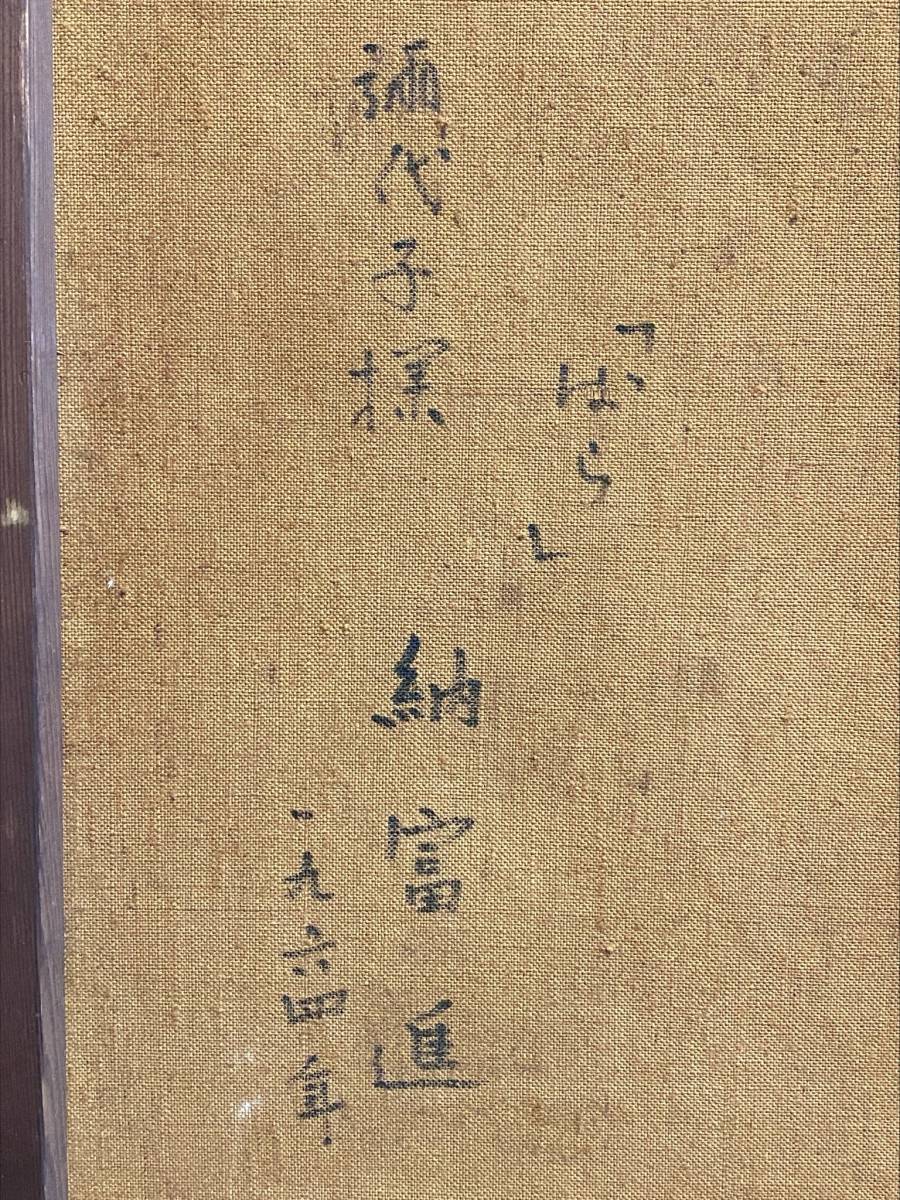 「ばら」
納富進
彌代子様
一九六四年